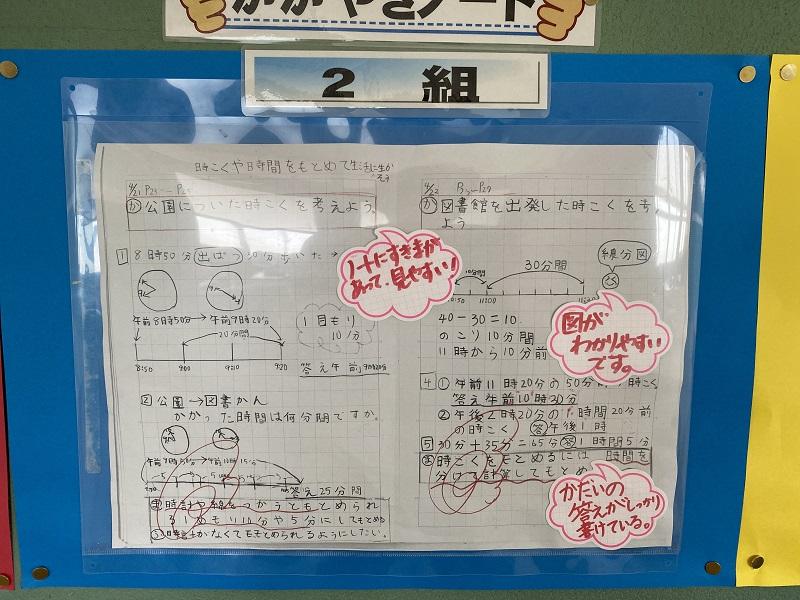 かがやきノート
2 組
時こくや時間をもとめて生活に生かそう
か 公園についた時こくを考えよう。
1 8時50分 出ぱつ 30分歩いた→
午前8時50分→午前9時20分
1目もり
10分
8:50 9:00 9:10 9:20
答え午前9時20分
2 公園→図書かん
かかった時間は何分間ですか。
答え25分間
時計や線をつかうともとめられ
る 1めもり10分や5分にしてもとめる
時計がなくてももとめられるようにしたい。
4/22
か 図書館を出発した時こくを考え
よう
線分図
10分間 30分間
10:50 11:00
40-30=10
のこり10分間
11時から10分前
4 ① 午前11時20分の50分前の時こく
答え午前10時30分
② 午後2時20分の1時間20分前
の時こく 答午後1時
5 30分+35分=65分 答1時間5分
ま 時こくをもとめるには 時間を
分けて計算してもとめ
ノートにすきまが
あって、見やすい!
図が
わかりやすい
です。
かだいの
答えがしっかり
書けている。